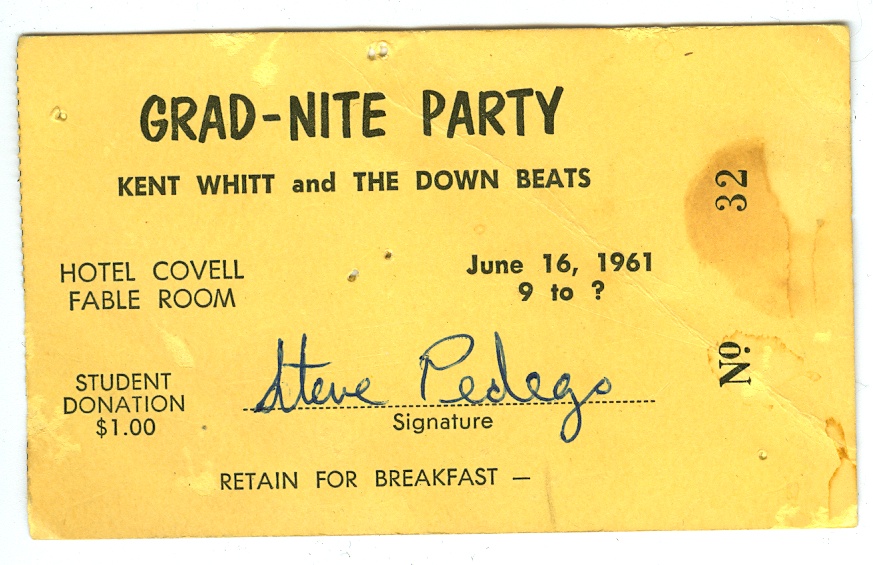 GRAD-NITE PARTY
KENT WHITT and THE DOWN BEATS
HOTEL COVELL
FABLE ROOM
June 16, 1961
9 to ?
STUDENT
DONATION
$1.00
Steve Pedego
Signature
RETAIN FOR BREAKFAST —
Nº 32